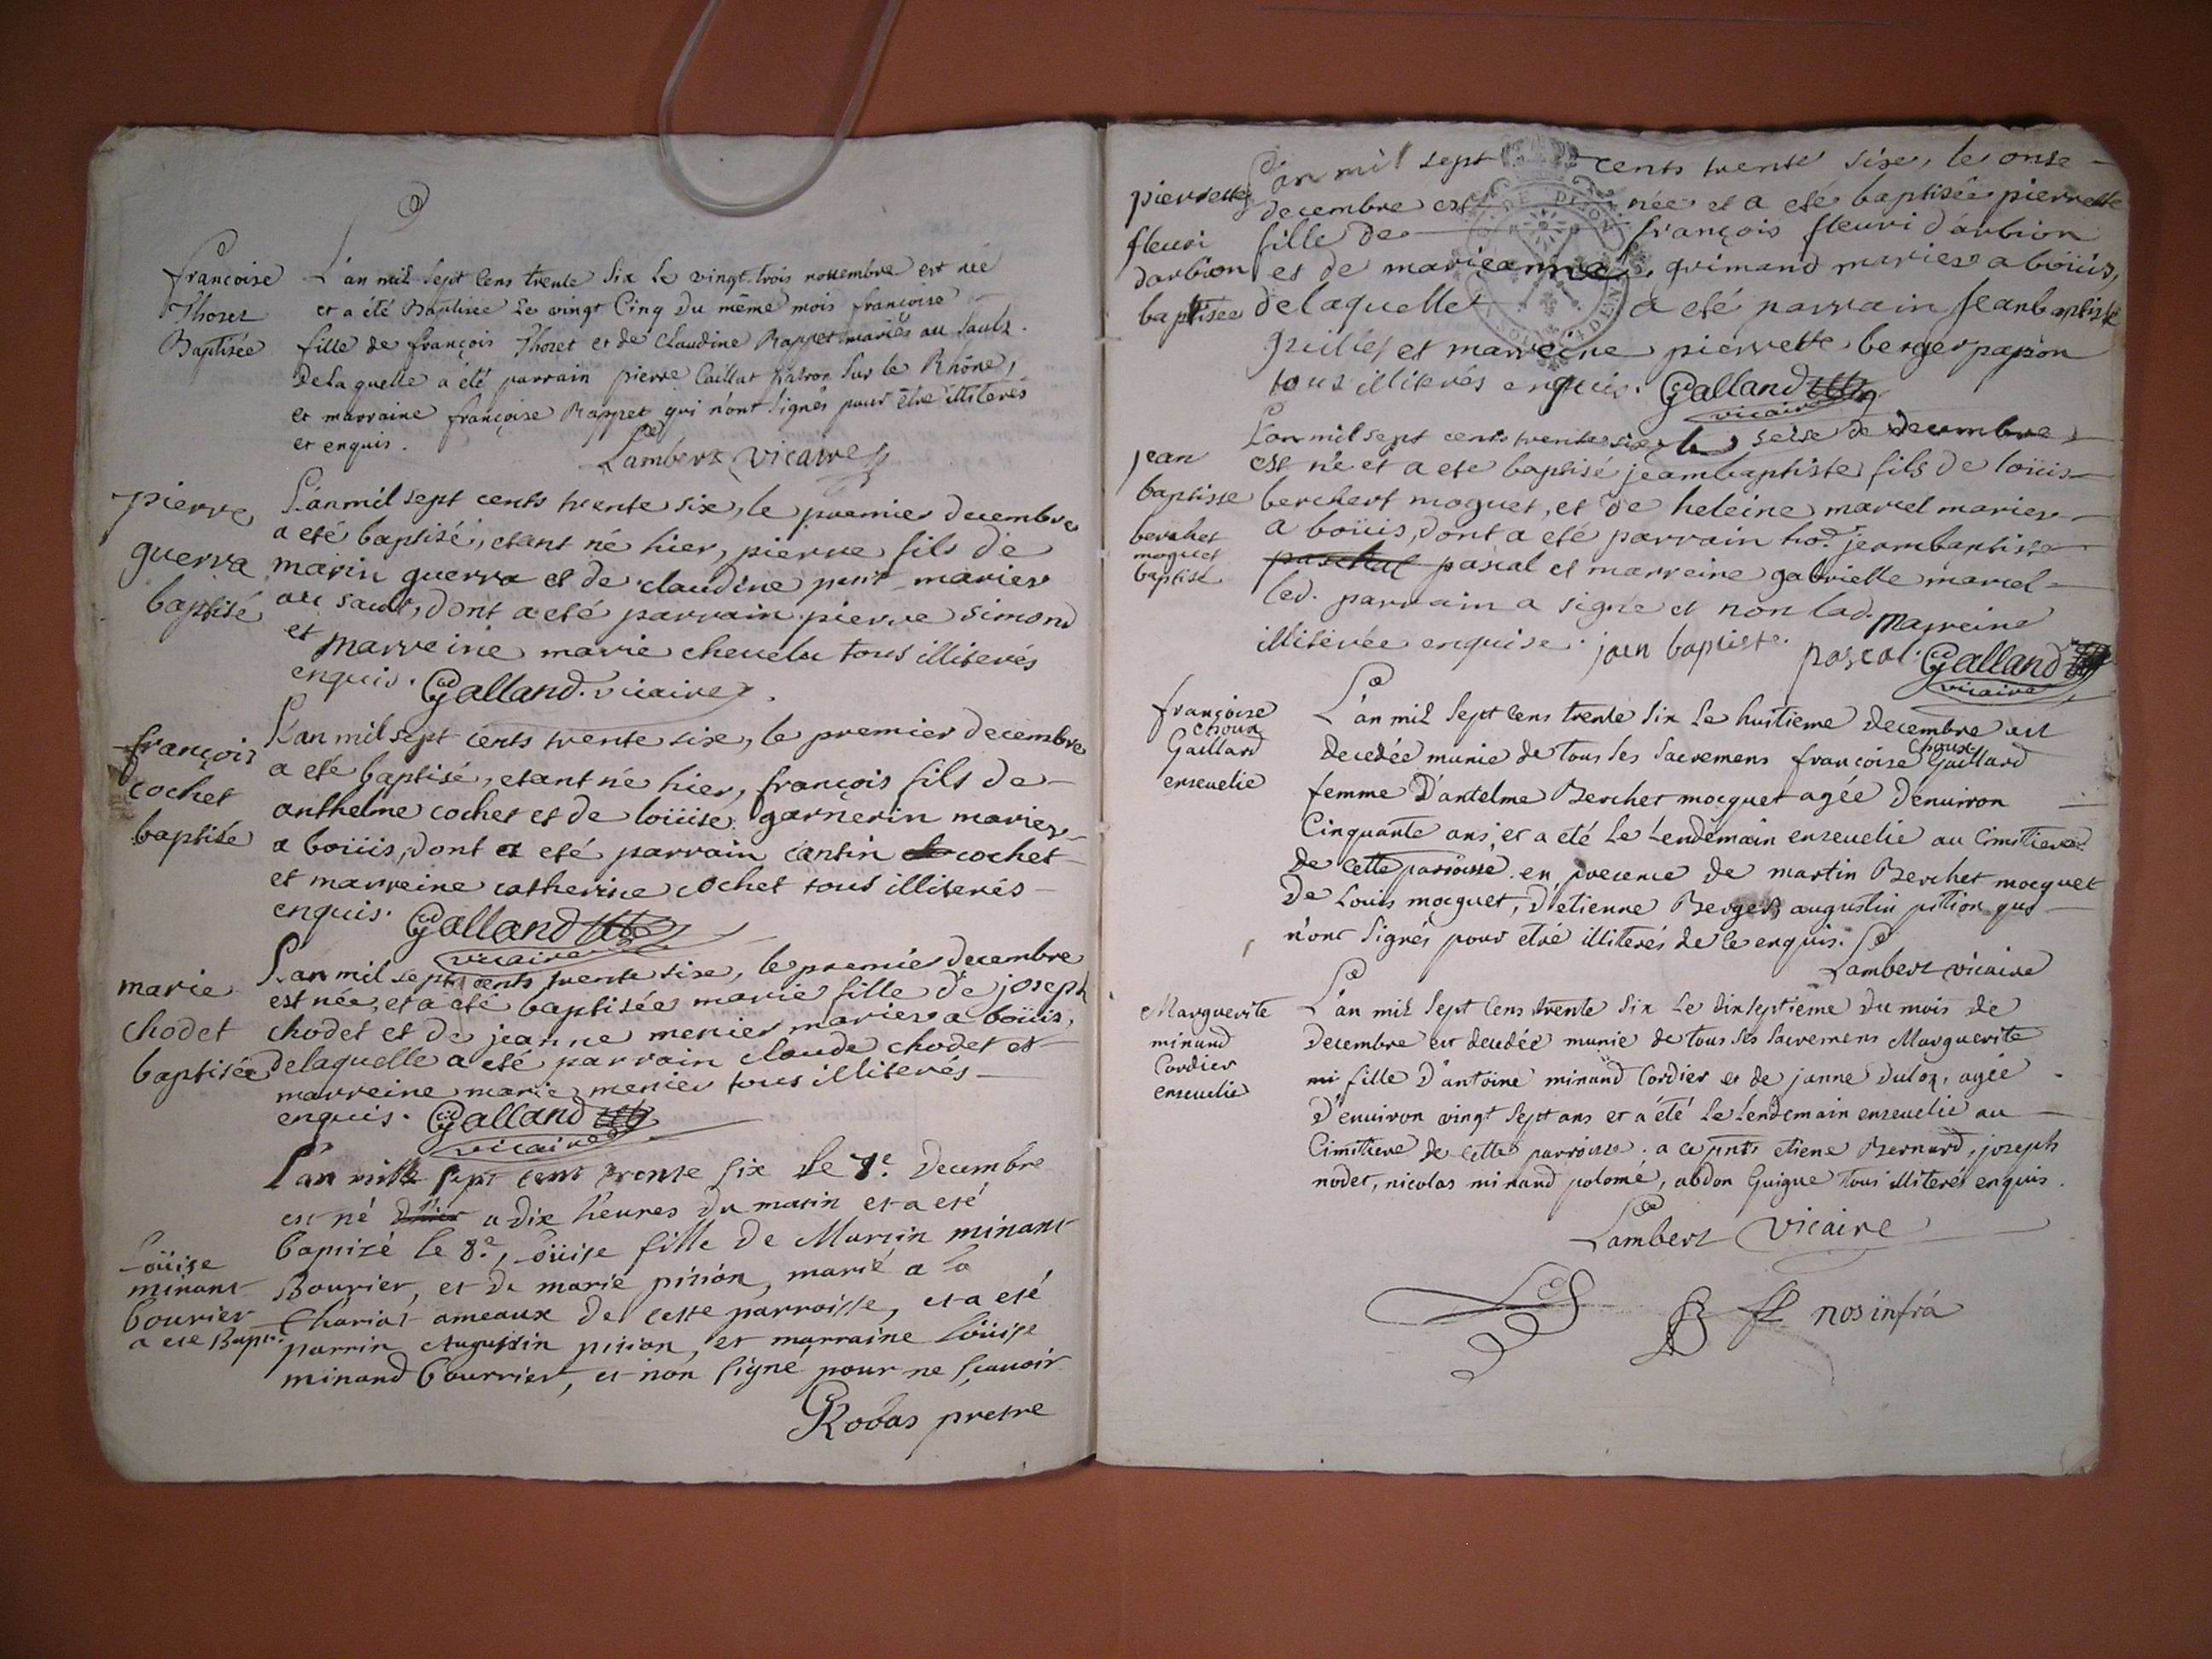 françoise
Thoret
Baptisée
L'an mil sept Cens trente Six Le vingt trois novembre est née
et a été Baptisée Le vingt Cinq Du même mois françoise
fille de françois Thoret et de Claudine Rappet mariés au Sault.
De la quelle a été parrain pierre Caillat patron Sur le Rhône,
et marraine françoise Rappet qui n'ont Signés pour être illiterés
et enquis.
Lambert Vicaire
pierre
guerra
baptisé
L'an mil sept cents trente six, le premier decembre
a eté baptisé, etant né hier, pierre fils de
marin guerra et de claudine petit maries
au sault, dont a eté parrain pierre simond
et marreine marie chevelu tous illiterés
enquis. Galland vicaire
françois
cochet
baptisé
L'an mil sept cents trente six, le premier decembre
a eté baptisé, etant né hier, françois fils de
anthelme cochet et de loüise garnerin maries
a boüis, dont a eté parrain cantin cochet
et marreine catherine cochet tous illiterés
enquis. Galland
vicaire
marie
chodet
baptisée
L'an mil sept cents trente six, le premier decembre
est née, et a eté baptisée marie fille de joseph
chodet et de jeanne menier maries a boüis,
de laquelle a eté parrain claude chodet et
marreine marie menier tous illiterés
enquis. Galland
vicaire
Loüise
minant
bourier
a ete Bapt.
L'an mille sept cent trente six le 7e. Decembre
est né a Dix heures Du matin et a eté
baptizé le 8e, Loüise fille De Martin minant
Bourier, et De marie pition, marié a la
Chariat ameaux De cette parroisse, et a eté
parrin Augustin pition, et marraine Loüise
minand bourrier, et non signé pour ne sçavoir
Robas pretre
pierrette
fleuri
darbion
baptisée
L'an mil sept cents trente six, le onze
decembre est née et a eté baptisée pierrette
fille de françois fleuri d'arbion
et de marieanne grimand maries a boüis,
de laquelle a eté parrain Jeanbaptiste
grillet et marreine pierrette berger papon
tous illiterés enquis. Galland
vicaire
jean
baptisse
berchet
moguet
baptisé
L'an mil sept cents trente six le seise de decembre
est né et a ete baptisé jeambaptiste fils de loüis
berchert moguet, et de heleine marcel maries
a boüis, dont a eté parrain ho.d jeambaptiste
paschal pascal et marreine gabrielle marcel
led. parrain a signé et non lad. marreine
illiterée enquise. jean baptiste pascal. Galland
vicaire
françoise
choux
Gaillard
ensevelie
L'an mil Sept Cens trente Six Le huitieme Decembre est
Decedée munie de tous les Sacremens françoise choux Gaillard
femme D'antelme Berchet mocquet agée D'environ
Cinquante ans, et a été Le Lendemain ensevelie au Cimitiere
de cette paroisse en presence de martin Berchet mocquet
De Louis mocquet, D'etienne Berger, augustin pition qui
n'ont Signés pour etre illiterés de ce enquis.
Lambert vicaire
Marguerite
minand
Cordier
ensevelie
L'an mil Sept Cens trente Six Le dixseptieme Du mois de
Decembre est decedée munie de tous les Sacremens Marguerite
mi fille D'antoine minand Cordier et de janne Duloz, agée
D'environ vingt Sept ans et a été Le Lendemain ensevelie au
Cimitiere de cette parroisse. a ce pnts etiene Bernard, joseph
nodet, nicolas minand polomé, abdon Guigue tous illiterés enquis.
Lambert Vicaire
nos infrà